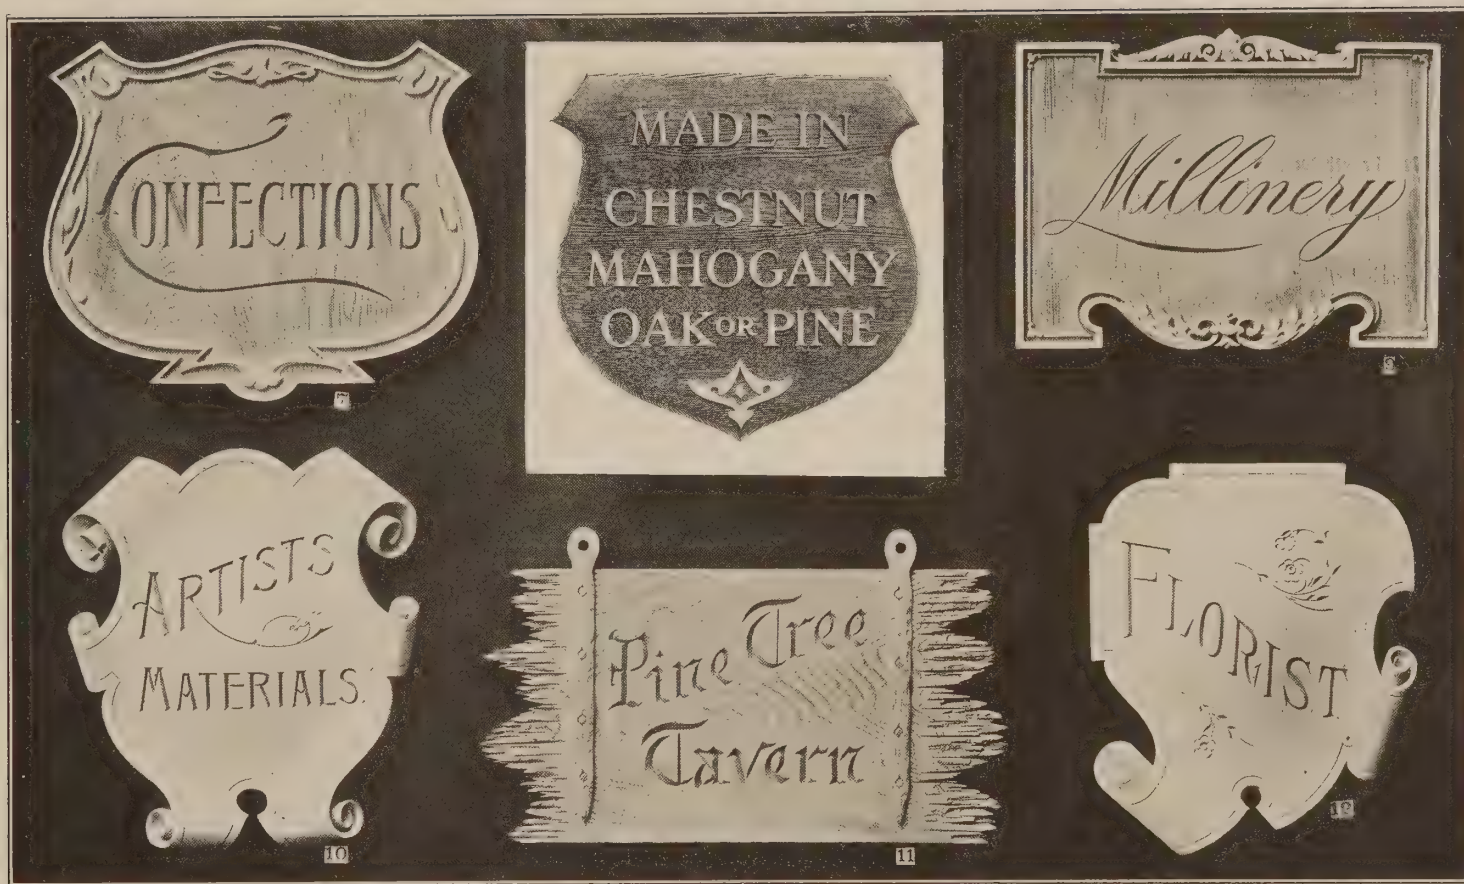 CONFECTIONS
7
MADE IN
CHESTNUT
MAHOGANY
OAK OR PINE
Millinery
ARTISTS
MATERIALS.
10
Pine Tree
Tavern
11
FLORIST
12